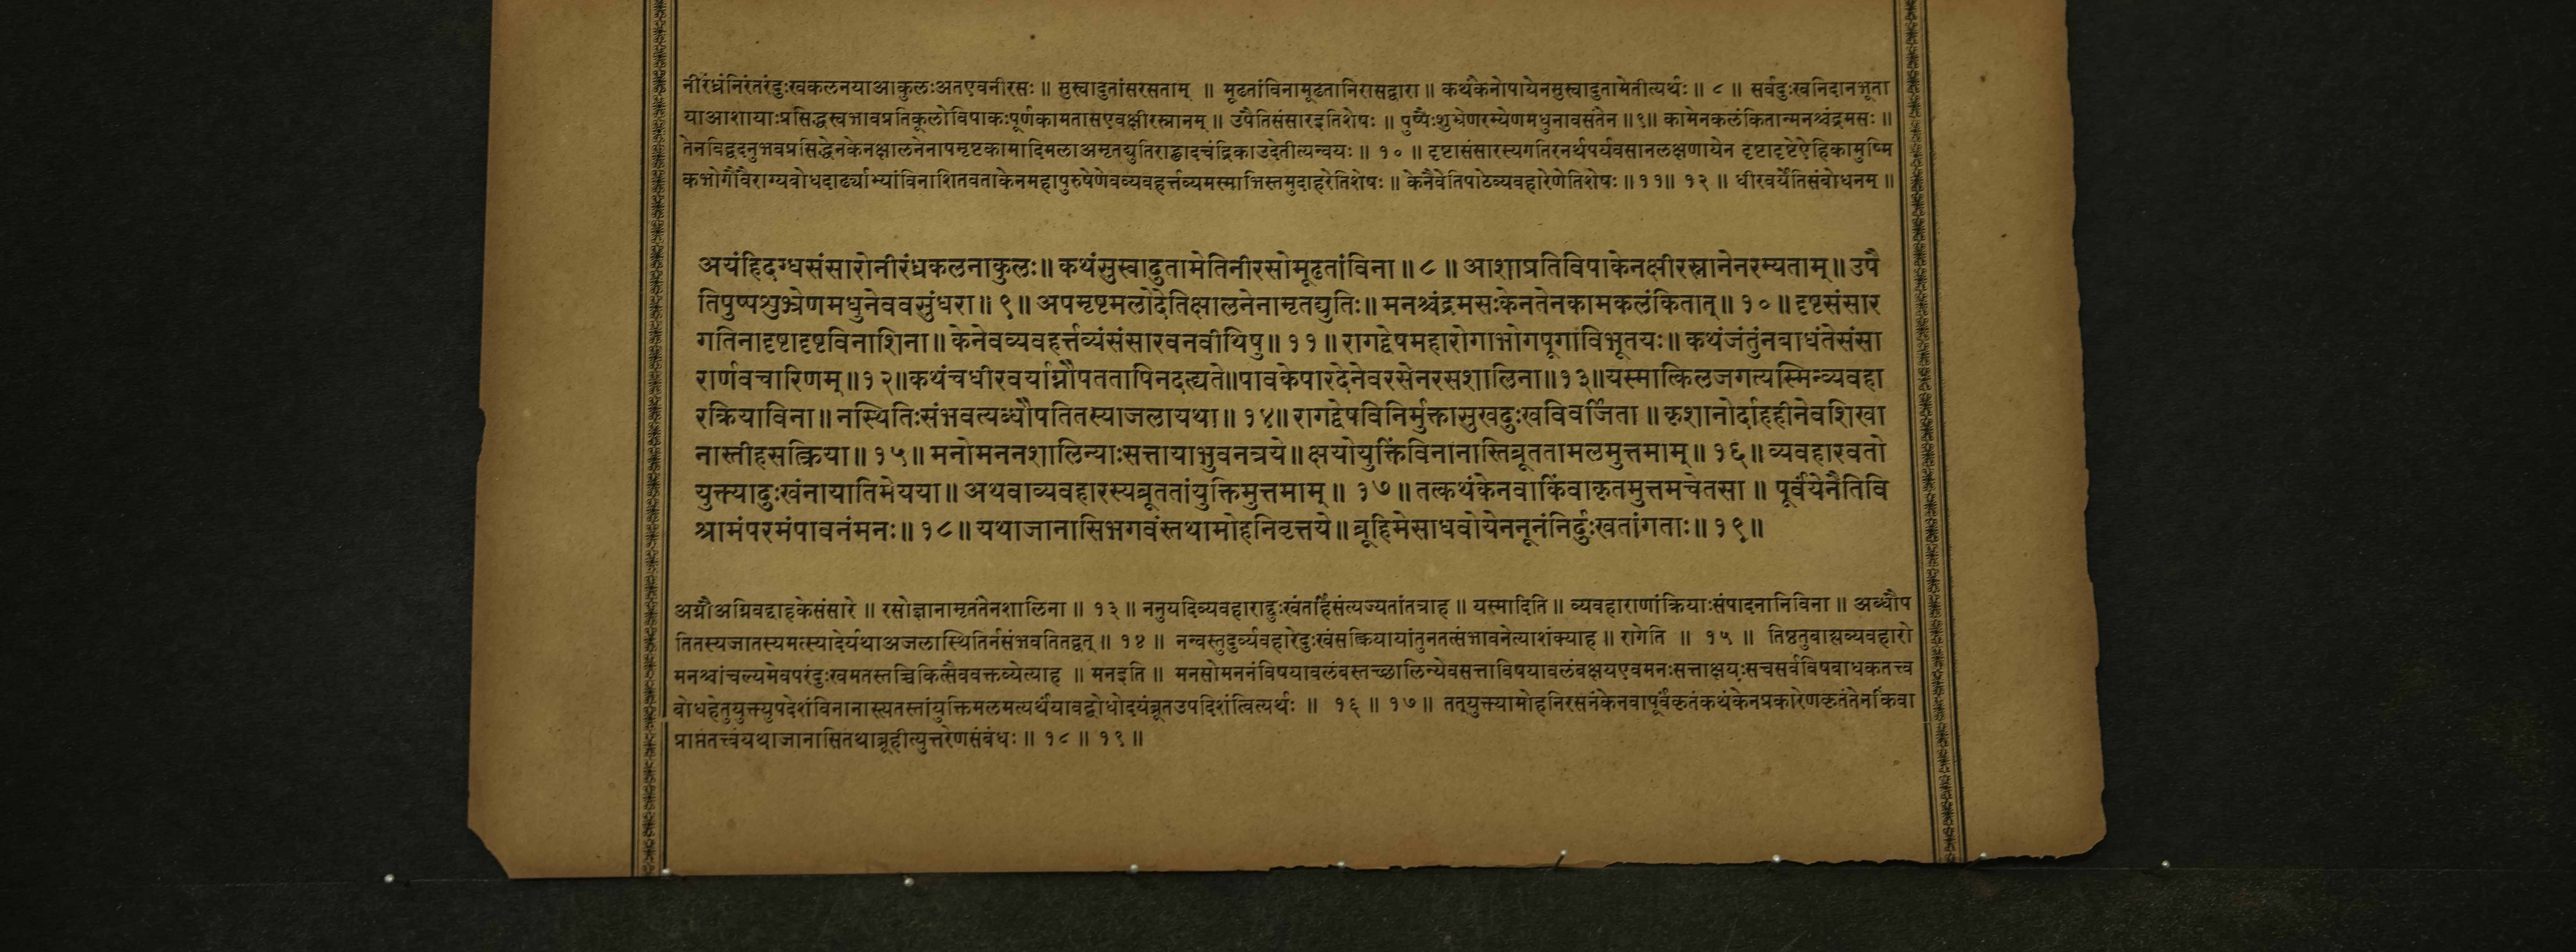 नीरंध्रंनिरंतरंदुःखकलनयाआकुलःअतएवनीरसः ॥ सुस्वादुतांसरसताम् ॥ मूढतांविनामूढतानिरासद्वारा ॥ कथंकेनोपायेनसुस्वादुतामेतीत्यर्थः ॥ ८ ॥ सर्वदुःखनिदानभूता
याआशायाःप्रसिद्धस्वभावप्रतिकूलोविपाकःपूर्णकामतासएवक्षीरस्नानम् ॥ उपैतिसंसारइतिशेषः ॥ पुष्पैःशुभ्रेणरम्येणमधुनावसंतेन ॥९॥ कामेनकलंकितान्मनश्चंद्रमसः ॥
तेनविद्वदनुभवप्रसिद्धेनकेनक्षालनेनापमृष्टकामादिमलाअमृतद्युतिराह्लादचंद्रिकाउदेतीत्यन्वयः ॥ १० ॥ दृष्टासंसारस्यगतिरनर्थपर्यवसानलक्षणायेन दृष्टादृष्टेऐहिकामुष्मि
कभोगौवैराग्यबोधदार्ढ्याभ्यांविनाशितवताकेनमहापुरुषेणेवव्यवहर्त्तव्यमस्माभिस्तमुदाहरेतिशेषः ॥ केनैवेतिपाठेव्यवहारेणेतिशेषः ॥११॥ १२ ॥ धीरवर्येतिसंबोधनम् ॥
अयंहिदग्धसंसारोनीरंध्रकलनाकुलः॥ कथंसुस्वादुतामेतिनीरसोमूढतांविना ॥ ८ ॥ आशाप्रतिविपाकेनक्षीरस्नानेनरम्यताम्॥ उपै
तिपुष्पशुभ्रेणमधुनेववसुंधरा॥ ९॥ अपमृष्टमलोदेतिक्षालनेनामृतद्युतिः॥ मनश्चंद्रमसःकेनतेनकामकलंकितात्॥ १०॥ दृष्टसंसार
गतिनादृष्टादृष्टविनाशिना॥ केनेवव्यवहर्त्तव्यंसंसारवनवीथिषु॥ ११॥ रागद्वेषमहारोगाभोगपूगाविभूतयः॥ कथंजंतुंनबाधंतेसंसा
रार्णवचारिणम्॥१२॥कथंचधीरवर्याग्नौपततापिनदह्यते॥पावकेपारदेनेवरसेनरसशालिना॥१३॥यस्मात्किलजगत्यस्मिन्व्यवहा
रक्रियाविना॥ नस्थितिःसंभवत्यब्धौपतितस्याजलायथा॥ १४॥ रागद्वेषविनिर्मुक्तासुखदुःखविवर्जिता ॥ कृशानोर्दाहहीनेवशिखा
नास्तीहसत्क्रिया॥ १५॥ मनोमननशालिन्याःसत्तायाभुवनत्रये॥ क्षयोयुक्तिंविनानास्तिब्रूततामलमुत्तमाम्॥ १६॥ व्यवहारवतो
युक्त्यादुःखंनायातिमेयया॥ अथवाव्यवहारस्यब्रूततांयुक्तिमुत्तमाम्॥ १७॥ तत्कथंकेनवाकिंवाकृतमुत्तमचेतसा॥ पूर्वंयेनैतिवि
श्रामंपरमंपावनंमनः॥ १८॥ यथाजानासिभगवंस्तथामोहनिवृत्तये॥ ब्रूहिमेसाधवोयेननूनंनिर्दुःखतांगताः॥ १९॥
अग्नौअग्निवद्दाहकेसंसारे ॥ रसोज्ञानामृतंतेनशालिना ॥ १३ ॥ ननुयदिव्यवहाराद्दुःखंतर्हिसंत्यज्यतांतत्राह ॥ यस्मादिति ॥ व्यवहाराणांक्रियाःसंपादनानिविना ॥ अब्धौप
तितस्यजातस्यमत्स्यादेर्यथाअजलास्थितिर्नसंभवतितद्वत् ॥ १४ ॥ नन्वस्तुदुर्व्यवहारेदुःखंसत्क्रियायांतुनतत्संभावनेत्याशंक्याह ॥ रागेति ॥ १५ ॥ तिष्ठतुबाह्यव्यवहारो
मनश्चांचल्यमेवपरंदुःखमतस्तच्चिकित्सैववक्तव्येत्याह ॥ मनइति ॥ मनसोमननंविषयावलंबस्तच्छालिन्येवसत्ताविषयावलंबक्षयएवमनःसत्ताक्षयःसचसर्वविषबाधकतत्त्व
बोधहेतुयुक्त्युपदेशंविनानास्त्यतस्तांयुक्तिमलमत्यर्थंयावद्बोधोदयंब्रूतउपदिशंत्वित्यर्थः ॥ १६ ॥ १७॥ तत्युक्त्यामोहनिरसनंकेनवापूर्वंकृतंकथंकेनप्रकारेणकृतंतेनकिंवा
प्राप्तंतत्त्वंयथाजानासितथाब्रूहीत्युत्तरेणसंबंधः ॥ १८ ॥ १९॥